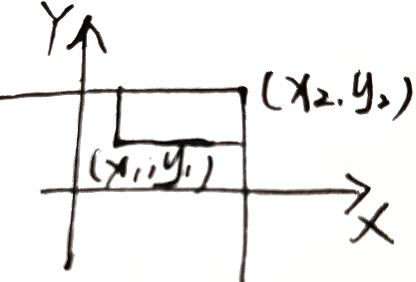 Y
(x₂, y₂)
(x₁, y₁)
X